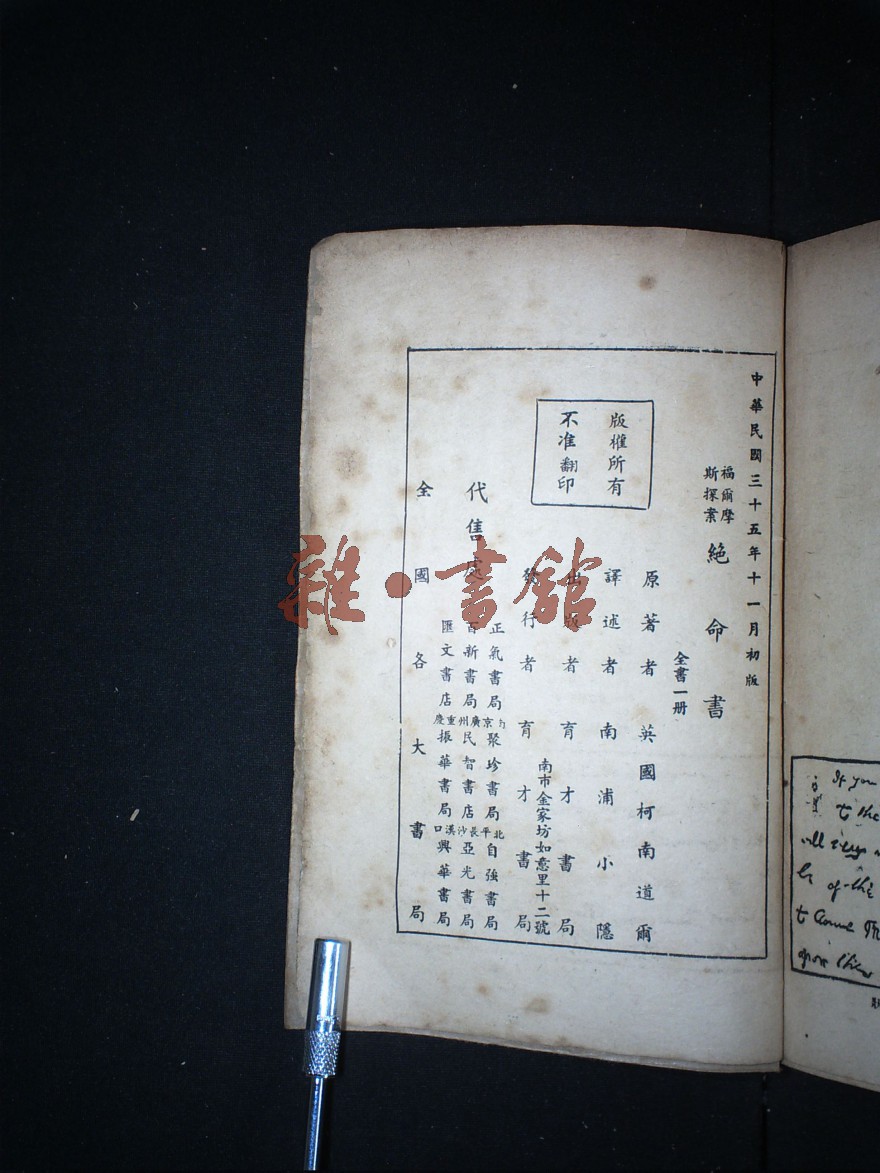 中華民國三十五年十一月初版
福爾摩斯探案
絕命書
全書一册
原著者 英國柯南道爾
譯述者 南浦小隱
出版者 育才書局
南市金家坊如意里十二號
發行者 育才書局
版權所有
不准翻印
代售處
正氣書局
百新書局
匯文書店
京 聚珍書局
廣州 民智書店
重慶 振華書局
北平 自強書局
長沙 亞光書局
漢口 興華書局
全國各大書局
If you
to the
of the
to Come
upon
雜·書館